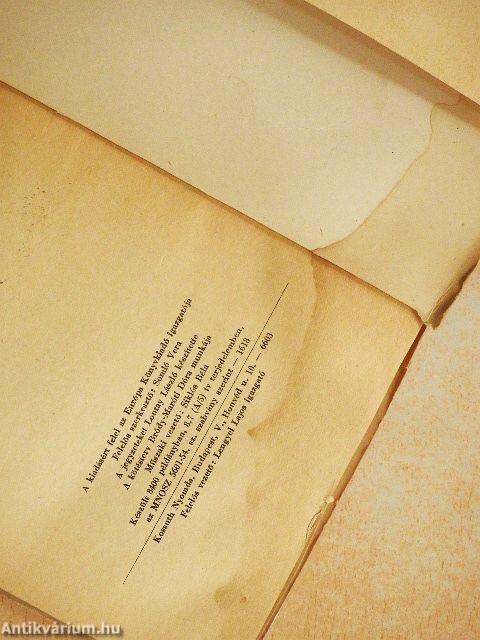 A kiadásért felel az Európa Könyvkiadó igazgatója
Felelős szerkesztő: Somló Vera
A jegyzeteket Lontay László készítette
A kötésterv Bródy-Maróti Dóra munkája
Műszaki vezető: Siklós Béla
Készült 8400 példányban, 8,7 (A/5) ív terjedelemben,
az MNOSZ 5601-54. sz. szabvány szerint — 1618
Kossuth Nyomda, Budapest, V., Honvéd u. 10. — 6603
Felelős vezető: Lengyel Lajos igazgató
Antikvárium.hu